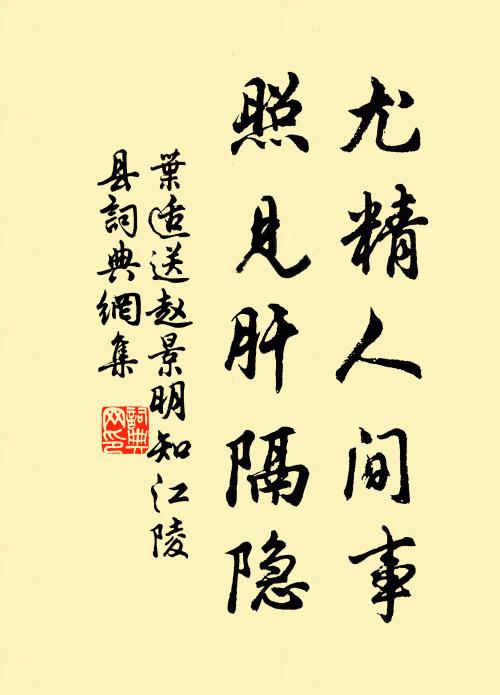 尤精人间事
照见肝隔隐
葉适送赵景明知江陵
县詞典網集
詞典
网印